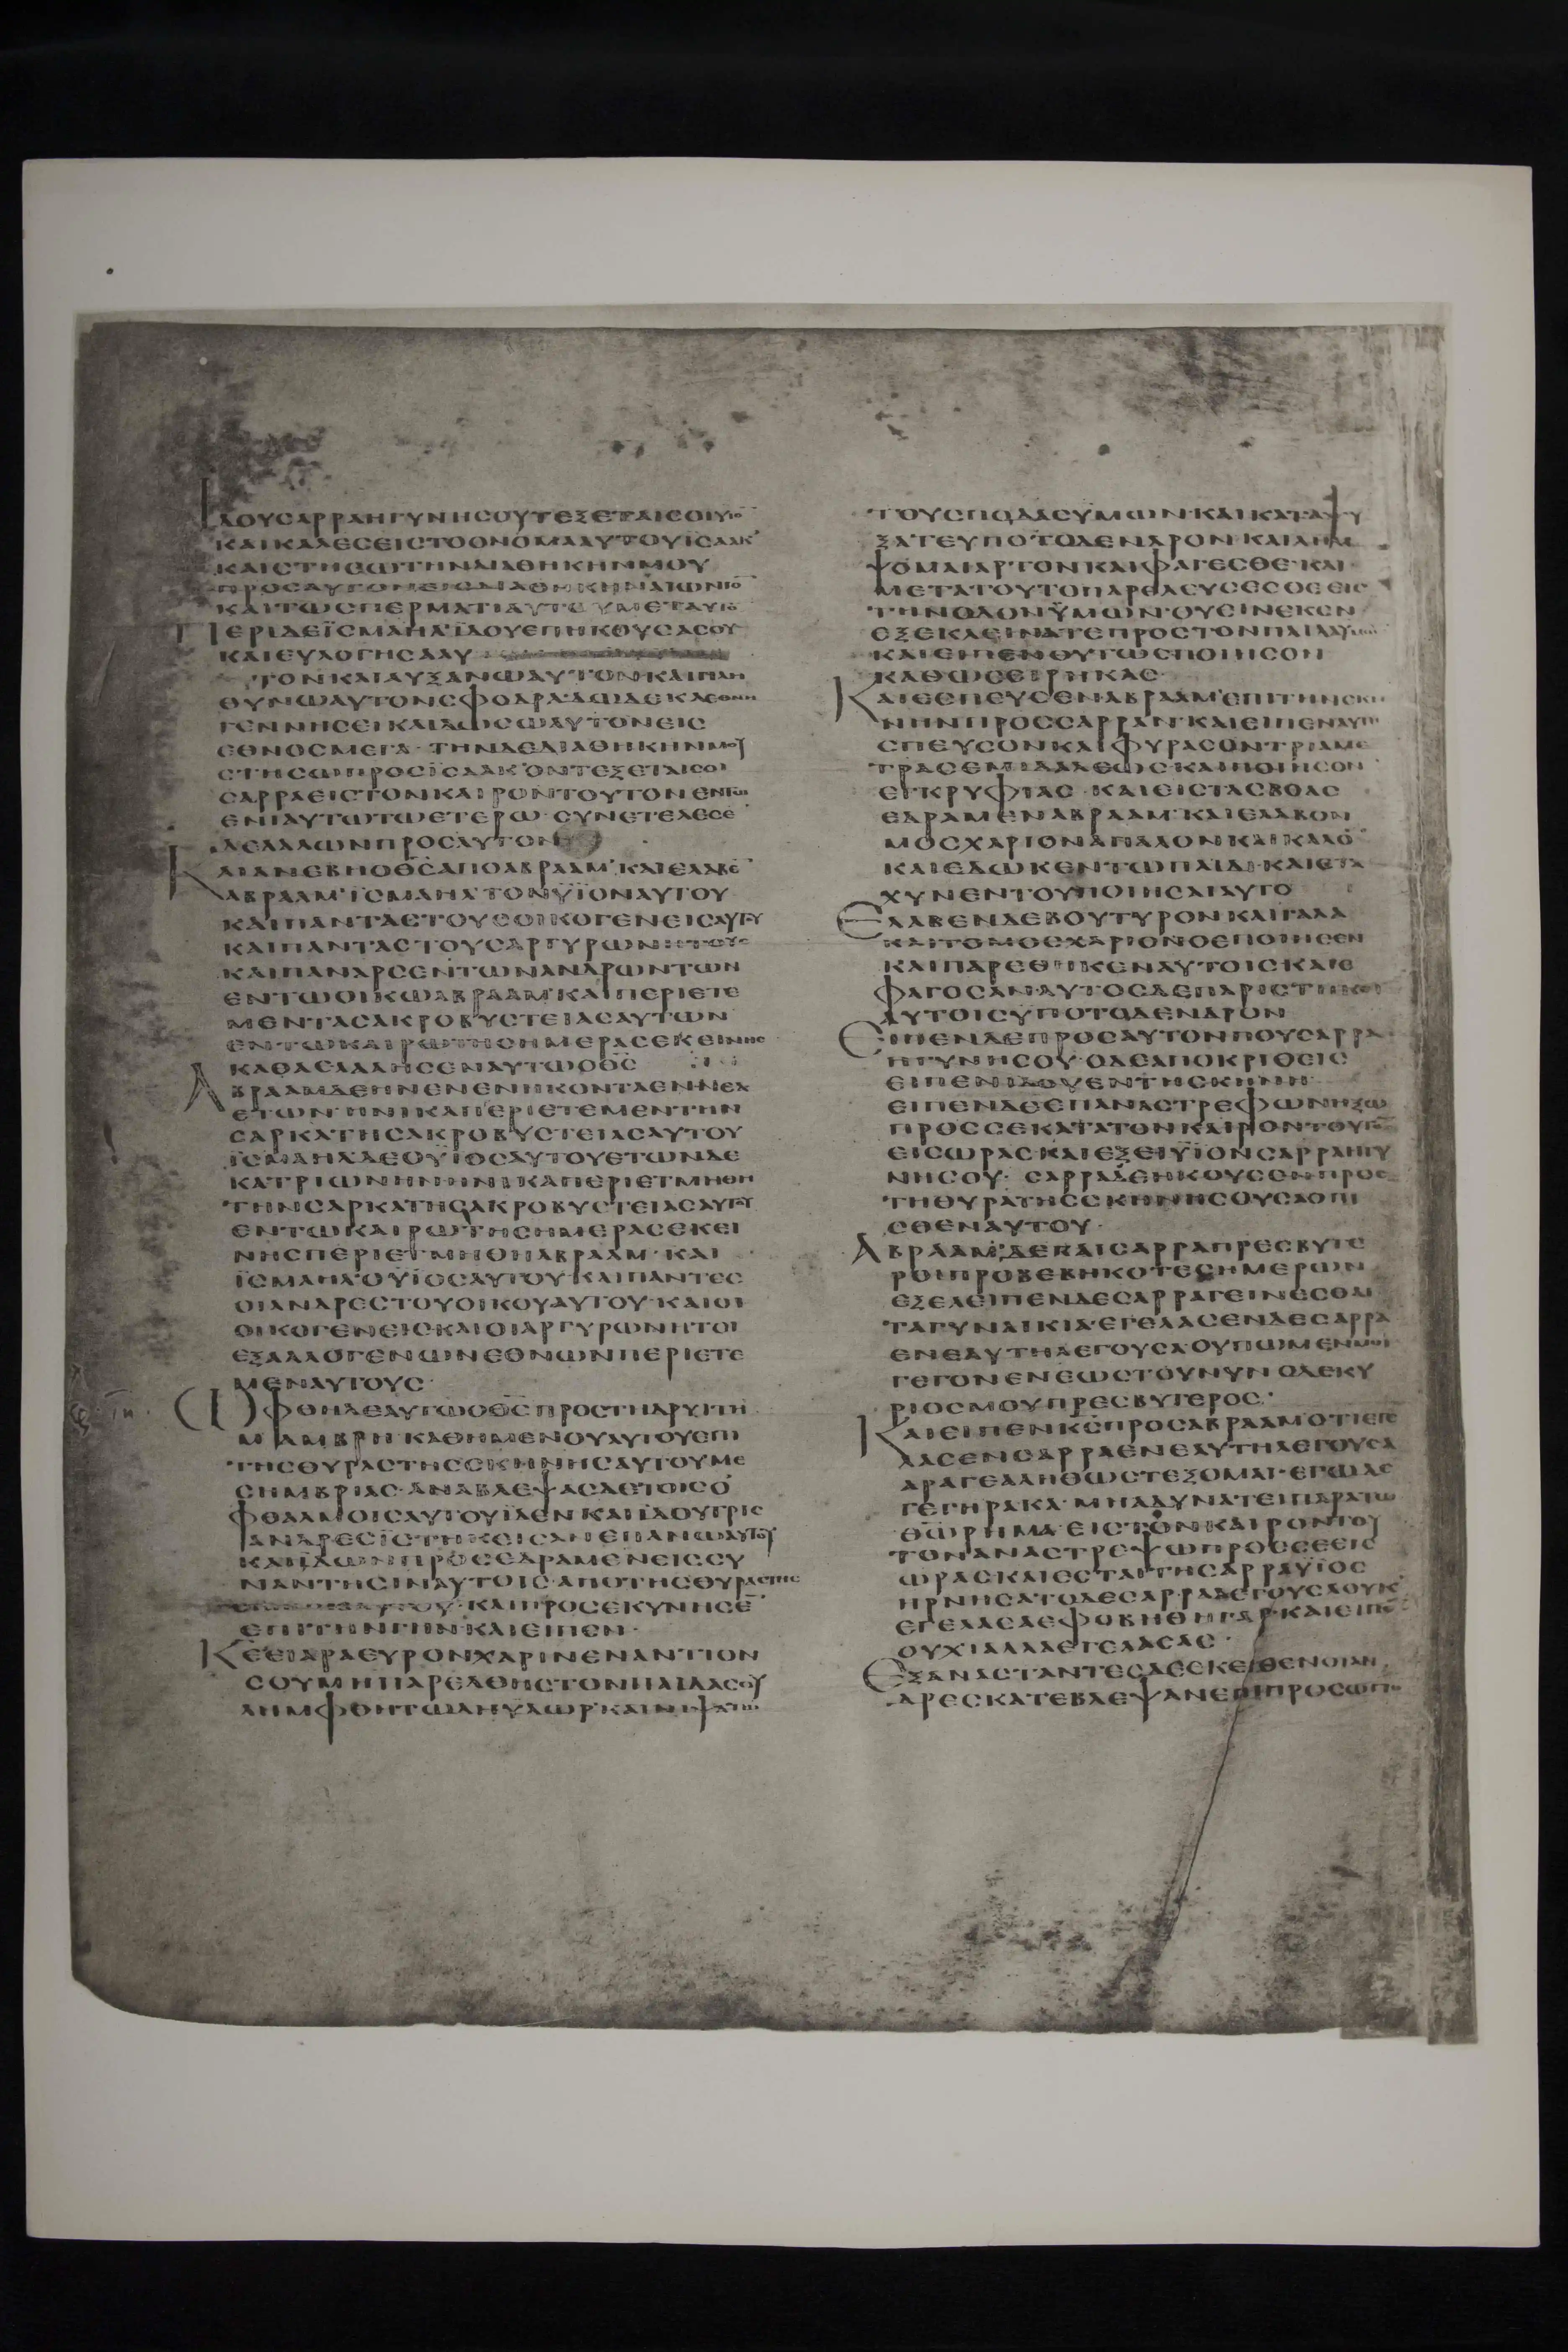 ΙΔΟΥСΑΡΡΑΗΓΥΝΗСΟΥΤΕΞΕΤΑΙСΟΙΥΙΟ̅
ΚΑΙΚΑΛΕСΕΙСΤΟΟΝΟΜΑΑΥΤΟΥΪСΑΑΚ·
ΚΑΙСΤΗСΩΤΗΝΔΙΑΘΗΚΗΝΜΟΥ
ΠΡΟСΑΥΤΟΝΕΙСΔΙΑΘΗΚΗΝΑΙΩΝΙΟ̅
ΚΑΙΤΩСΠΕΡΜΑΤΙΑΥΤΟΥΜΕΤΑΥΤΟ̅
ΠΕΡΙΔΕΪСΜΑΗΛ·ΪΔΟΥΕΠΗΚΟΥСΑСΟΥ
ΚΑΙΕΥΛΟΓΗСΑΑΥ
ΤΟΝΚΑΙΑΥΞΑΝΩΑΥΤΟΝΚΑΙΠΛΗ
ΘΥΝΩΑΥΤΟΝСΦΟΔΡΑ·ΔΩΔΕΚΑΕΘΝΗ
ΓΕΝΝΗСΕΙΚΑΙΔΩСΩΑΥΤΟΝΕΙС
ΕΘΝΟСΜΕΓΑ· ΤΗΝΔΕΔΙΑΘΗΚΗΝΜΟΥ
СΤΗСΩΠΡΟСΪСΑΑΚ·ΟΝΤΕΞΕΤΑΙСΟΙ
СΑΡΡΑΕΙСΤΟΝΚΑΙΡΟΝΤΟΥΤΟΝΕΝΤΩ
ΕΝΙΑΥΤΩΤΩΕΤΕΡΩ· СΥΝΕΤΕΛΕСΕ
ΔΕΛΑΛΩΝΠΡΟСΑΥΤΟΝ
ΚΑΙΑΝΕΒΗΟΘ̅С̅ΑΠΟΑΒΡΑΑΜ·ΚΑΙΕΛΑΒΕ̅
ΑΒΡΑΑΜ·ΪСΜΑΗΛΤΟΝΫΪΟΝΑΥΤΟΥ
ΚΑΙΠΑΝΤΑСΤΟΥСΟΙΚΟΓΕΝΕΙСΑΥΤΟΥ
ΚΑΙΠΑΝΤΑСΤΟΥСΑΡΓΥΡΩΝΗΤΟΥС
ΚΑΙΠΑΝΑΡСΕΝΤΩΝΑΝΔΡΩΝΤΩΝ
ΕΝΤΩΟΙΚΩΑΒΡΑΑΜ·ΚΑΙΠΕΡΙΕΤΕ
ΜΕΝΤΑСΑΚΡΟΒΥСΤΕΙΑСΑΥΤΩΝ
ΕΝΤΩΚΑΙΡΩΤΗСΗΜΕΡΑСΕΚΕΙΝΗС
ΚΑΘΑΕΛΑΛΗСΕΝΑΥΤΩΟΘ̅С̅
ΑΒΡΑΑΜΔΕΗΝΕΝΕΝΗΚΟΝΤΑΕΝΝΕΑ
ΕΤΩΝ·ΗΝΙΚΑΠΕΡΙΕΤΕΜΕΝΤΗΝ
СΑΡΚΑΤΗСΑΚΡΟΒΥСΤΕΙΑСΑΥΤΟΥ
ΪСΜΑΗΛΔΕΟΥΪΟСΑΥΤΟΥΕΤΩΝΔΕ
ΚΑΤΡΙΩΝΗΝΗΝΙΚΑΠΕΡΙΕΤΜΗΘΗ
ΤΗΝСΑΡΚΑΤΗСΑΚΡΟΒΥСΤΕΙΑСΑΥΤΟΥ
ΕΝΤΩΚΑΙΡΩΤΗСΗΜΕΡΑСΕΚΕΙ
ΝΗСΠΕΡΙΕΤΜΗΘΗΑΒΡΑΑΜ· ΚΑΙ
ΪСΜΑΗΛ·ΟΥΪΟСΑΥΤΟΥ·ΚΑΙΠΑΝΤΕС
ΟΙΑΝΔΡΕСΤΟΥΟΙΚΟΥΑΥΤΟΥ·ΚΑΙΟΙ
ΟΙΚΟΓΕΝΕΙСΚΑΙΟΙΑΡΓΥΡΩΝΗΤΟΙ
ΕΞΑΛΛΟΓΕΝΩΝΕΘΝΩΝΠΕΡΙΕΤΕ
ΜΕΝΑΥΤΟΥС·
ΩΦΘΗΔΕΑΥΤΩΟΘ̅С̅ΠΡΟСΤΗΔΡΥΙΤΗ
ΜΑΜΒΡΗ·ΚΑΘΗΜΕΝΟΥΑΥΤΟΥΕΠΙ
ΤΗСΘΥΡΑСΤΗССΚΗΝΗСΑΥΤΟΥΜΕ
СΗΜΒΡΙΑС·ΑΝΑΒΛΕΨΑСΔΕΤΟΙСΟ
ΦΘΑΛΜΟΙСΑΥΤΟΥΪΔΕΝΚΑΙΪΔΟΥΤΡΙС
ΑΝΔΡΕСΪСΤΗΚΕΙСΑΝΕΠΑΝΩΑΥΤΟΥ
ΚΑΙΪΔΩΝΠΡΟСΕΔΡΑΜΕΝΕΙССΥ
ΝΑΝΤΗСΙΝΑΥΤΟΙС·ΑΠΟΤΗСΘΥΡΑСΤΗС
ΑΥΤΟΥ·ΚΑΙΠΡΟСΕΚΥΝΗСΕ̅
ΕΠΙΤΗΝΓΗΝΚΑΙΕΙΠΕΝ·
Κ̅Ε̅ΕΙΑΡΑΕΥΡΟΝΧΑΡΙΝΕΝΑΝΤΙΟΝ
СΟΥΜΗΠΑΡΕΛΘΗСΤΟΝΠΑΙΔΑСΟΥ
ΛΗΜΦΘΗΤΩΔΗΥΔΩΡ·ΚΑΙΝΙΨΑΤΩ
ΤΟΥСΠΟΔΑСΥΜΩΝ·ΚΑΙΚΑΤΑΨΥ
ΞΑΤΕΥΠΟΤΟΔΕΝΔΡΟΝ·ΚΑΙΛΗΜ
ΨΟΜΑΙΑΡΤΟΝΚΑΙΦΑΓΕСΘΕ·ΚΑΙ
ΜΕΤΑΤΟΥΤΟΠΑΡΕΛΕΥСΕСΘΕΕΙС
ΤΗΝΟΔΟΝΫΜΩΝ·ΟΥΕΙΝΕΚΕΝ
ΕΞΕΚΛΕΙΝΑΤΕΠΡΟСΤΟΝΠΑΙΔΑΥ
ΚΑΙΕΙΠΕΝΟΥΤΩСΠΟΙΗСΟΝ
ΚΑΘΩСΕΙΡΗΚΑС·
ΚΑΙΕСΠΕΥСΕΝΑΒΡΑΑΜ·ΕΠΙΤΗΝСΚΗ
ΝΗΝΠΡΟССΑΡΡΑΝ·ΚΑΙΕΙΠΕΝΑΥΤΗ
СΠΕΥСΟΝΚΑΙΦΥΡΑСΟΝΤΡΙΑΜΕ
ΤΡΑСΕΜΙΔΑΛΕΩС·ΚΑΙΠΟΙΗСΟΝ
ΕΓΚΡΥΦΙΑС· ΚΑΙΕΙСΤΑСΒΟΑС
ΕΔΡΑΜΕΝΑΒΡΑΑΜ·ΚΑΙΕΛΑΒΟΝ
ΜΟСΧΑΡΙΟΝΑΠΑΛΟΝΚΑΙΚΑΛΟ̅
ΚΑΙΕΔΩΚΕΝΤΩΠΑΙΔΙ·ΚΑΙΕΤΑ
ΧΥΝΕΝΤΟΥΠΟΙΗСΑΙΑΥΤΟ
ΕΛΑΒΕΝΔΕΒΟΥΤΥΡΟΝΚΑΙΓΑΛΑ
ΚΑΙΤΟΜΟСΧΑΡΙΟΝΟΕΠΟΙΗСΕΝ
ΚΑΙΠΑΡΕΘΗΚΕΝΑΥΤΟΙСΚΑΙΕ
ΦΑΓΟСΑΝ·ΑΥΤΟСΔΕΠΑΡΙСΤΗΚΕΙ
ΑΥΤΟΙСΥΠΟΤΟΔΕΝΔΡΟΝ
ΕΙΠΕΝΔΕΠΡΟСΑΥΤΟΝΠΟΥСΑΡΡΑ
ΗΓΥΝΗСΟΥ·ΟΔΕΑΠΟΚΡΙΘΕΙС
ΕΙΠΕΝΙΔΟΥΕΝΤΗСΚΗΝΗ·
ΕΙΠΕΝΔΕΕΠΑΝΑСΤΡΕΦΩΝΗΞΩ
ΠΡΟССΕΚΑΤΑΤΟΝΚΑΙΡΟΝΤΟΥΤ
ΕΙСΩΡΑС·ΚΑΙΕΞΕΙΥΪΟΝСΑΡΡΑΗΓΥ
ΝΗСΟΥ· СΑΡΡΑΔΕΗΚΟΥСΕΝΠΡΟС
ΤΗΘΥΡΑΤΗССΚΗΝΗСΟΥСΑΟΠΙ
СΘΕΝΑΥΤΟΥ·
ΑΒΡΑΑΜ·ΔΕΚΑΙСΑΡΡΑΠΡΕСΒΥΤΕ
ΡΟΙΠΡΟΒΕΒΗΚΟΤΕСΗΜΕΡΩΝ
ΕΞΕΛΕΙΠΕΝΔΕСΑΡΡΑΓΕΙΝΕСΘΑΙ
ΤΑΓΥΝΑΙΚΙΑ·ΕΓΕΛΑСΕΝΔΕСΑΡΡΑ
ΕΝΕΑΥΤΗΛΕΓΟΥСΑ·ΟΥΠΩΜΕΝΜΟΙ
ΓΕΓΟΝΕΝΕΩСΤΟΥΝΥΝ·ΟΔΕΚΥ
ΡΙΟСΜΟΥΠΡΕСΒΥΤΕΡΟС·
ΚΑΙΕΙΠΕΝΚ̅С̅ΠΡΟСΑΒΡΑΑΜ·ΟΤΙΕΓΕ
ΛΑСΕΝСΑΡΡΑΕΝΕΑΥΤΗΛΕΓΟΥСΑ
ΑΡΑΓΕΑΛΗΘΩСΤΕΞΟΜΑΙ·ΕΓΩΔΕ
ΓΕΓΗΡΑΚΑ·ΜΗΑΔΥΝΑΤΕΙΠΑΡΑΤΩ
ΘΩΡΗΜΑ·ΕΙСΤΟΝΚΑΙΡΟΝΤΟΥ
ΤΟΝΑΝΑСΤΡΕΨΩΠΡΟССΕΕΙС
ΩΡΑСΚΑΙΕСΤΑΙΤΗСΑΡΡΑΥΪΟС
ΗΡΝΗСΑΤΟΔΕСΑΡΡΑΛΕΓΟΥСΑΟΥΚ
ΕΓΕΛΑСΑΕΦΟΒΗΘΗΓΑΡ·ΚΑΙΕΙΠΕ̅
ΟΥΧΙΑΛΛΑΕΓΕΛΑСΑС·
ΕΞΑΝΑСΤΑΝΤΕСΔΕΕΚΕΙΘΕΝΟΙΑΝ
ΔΡΕСΚΑΤΕΒΛΕΨΑΝΕΠΙΠΡΟСΩΠΟ